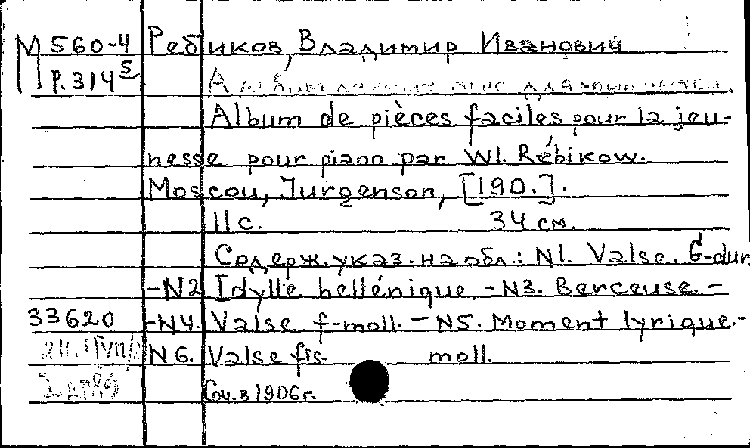 М 560-4 Ребиков, Владимир Иванович
Р.314⁵ Альбом
Album de pièces faciles pour la jeu-
nesse pour piano par Wl. Rébikow.
Moscou, Jurgenson, [190.].
11 с. 34 см.
Содерж. указ. на обл.: N1. Valse. G-dur
-N2 Idylle hellénique. -N3. Berceuse. -
33620 -N4. Valse f-moll. - N5. Moment lyrique.-
N6. Valse fis- moll.
Соч. в 1906 г.